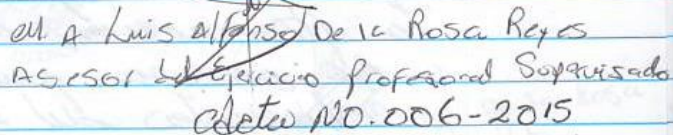 M A Luis Alfonso De la Rosa Reyes
Asesor del Ejercicio Profesional Supervisado
Acta NO. 006-2015